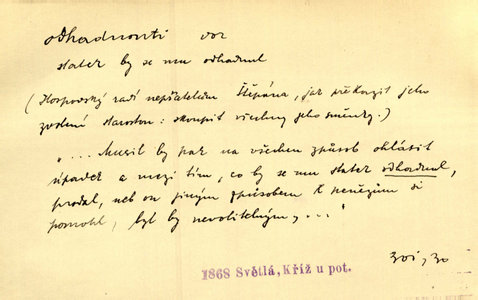 odhadnouti dov
statek by se mu odhadnul
(Hospodský radí nepřátelům Štěpána, jak překazit jeho
zvolení starostou: skoupit všechny jeho směnky.)
„... Musil by pak na všechen způsob ohlásit
úpadek a mezi tím, co by se mu statek odhadnul,
prodal, neb on jiným způsobem k penězům si
pomohl, byl by nevolitelným, ..."
1868 Světlá, Kříž u pot.
201, 30